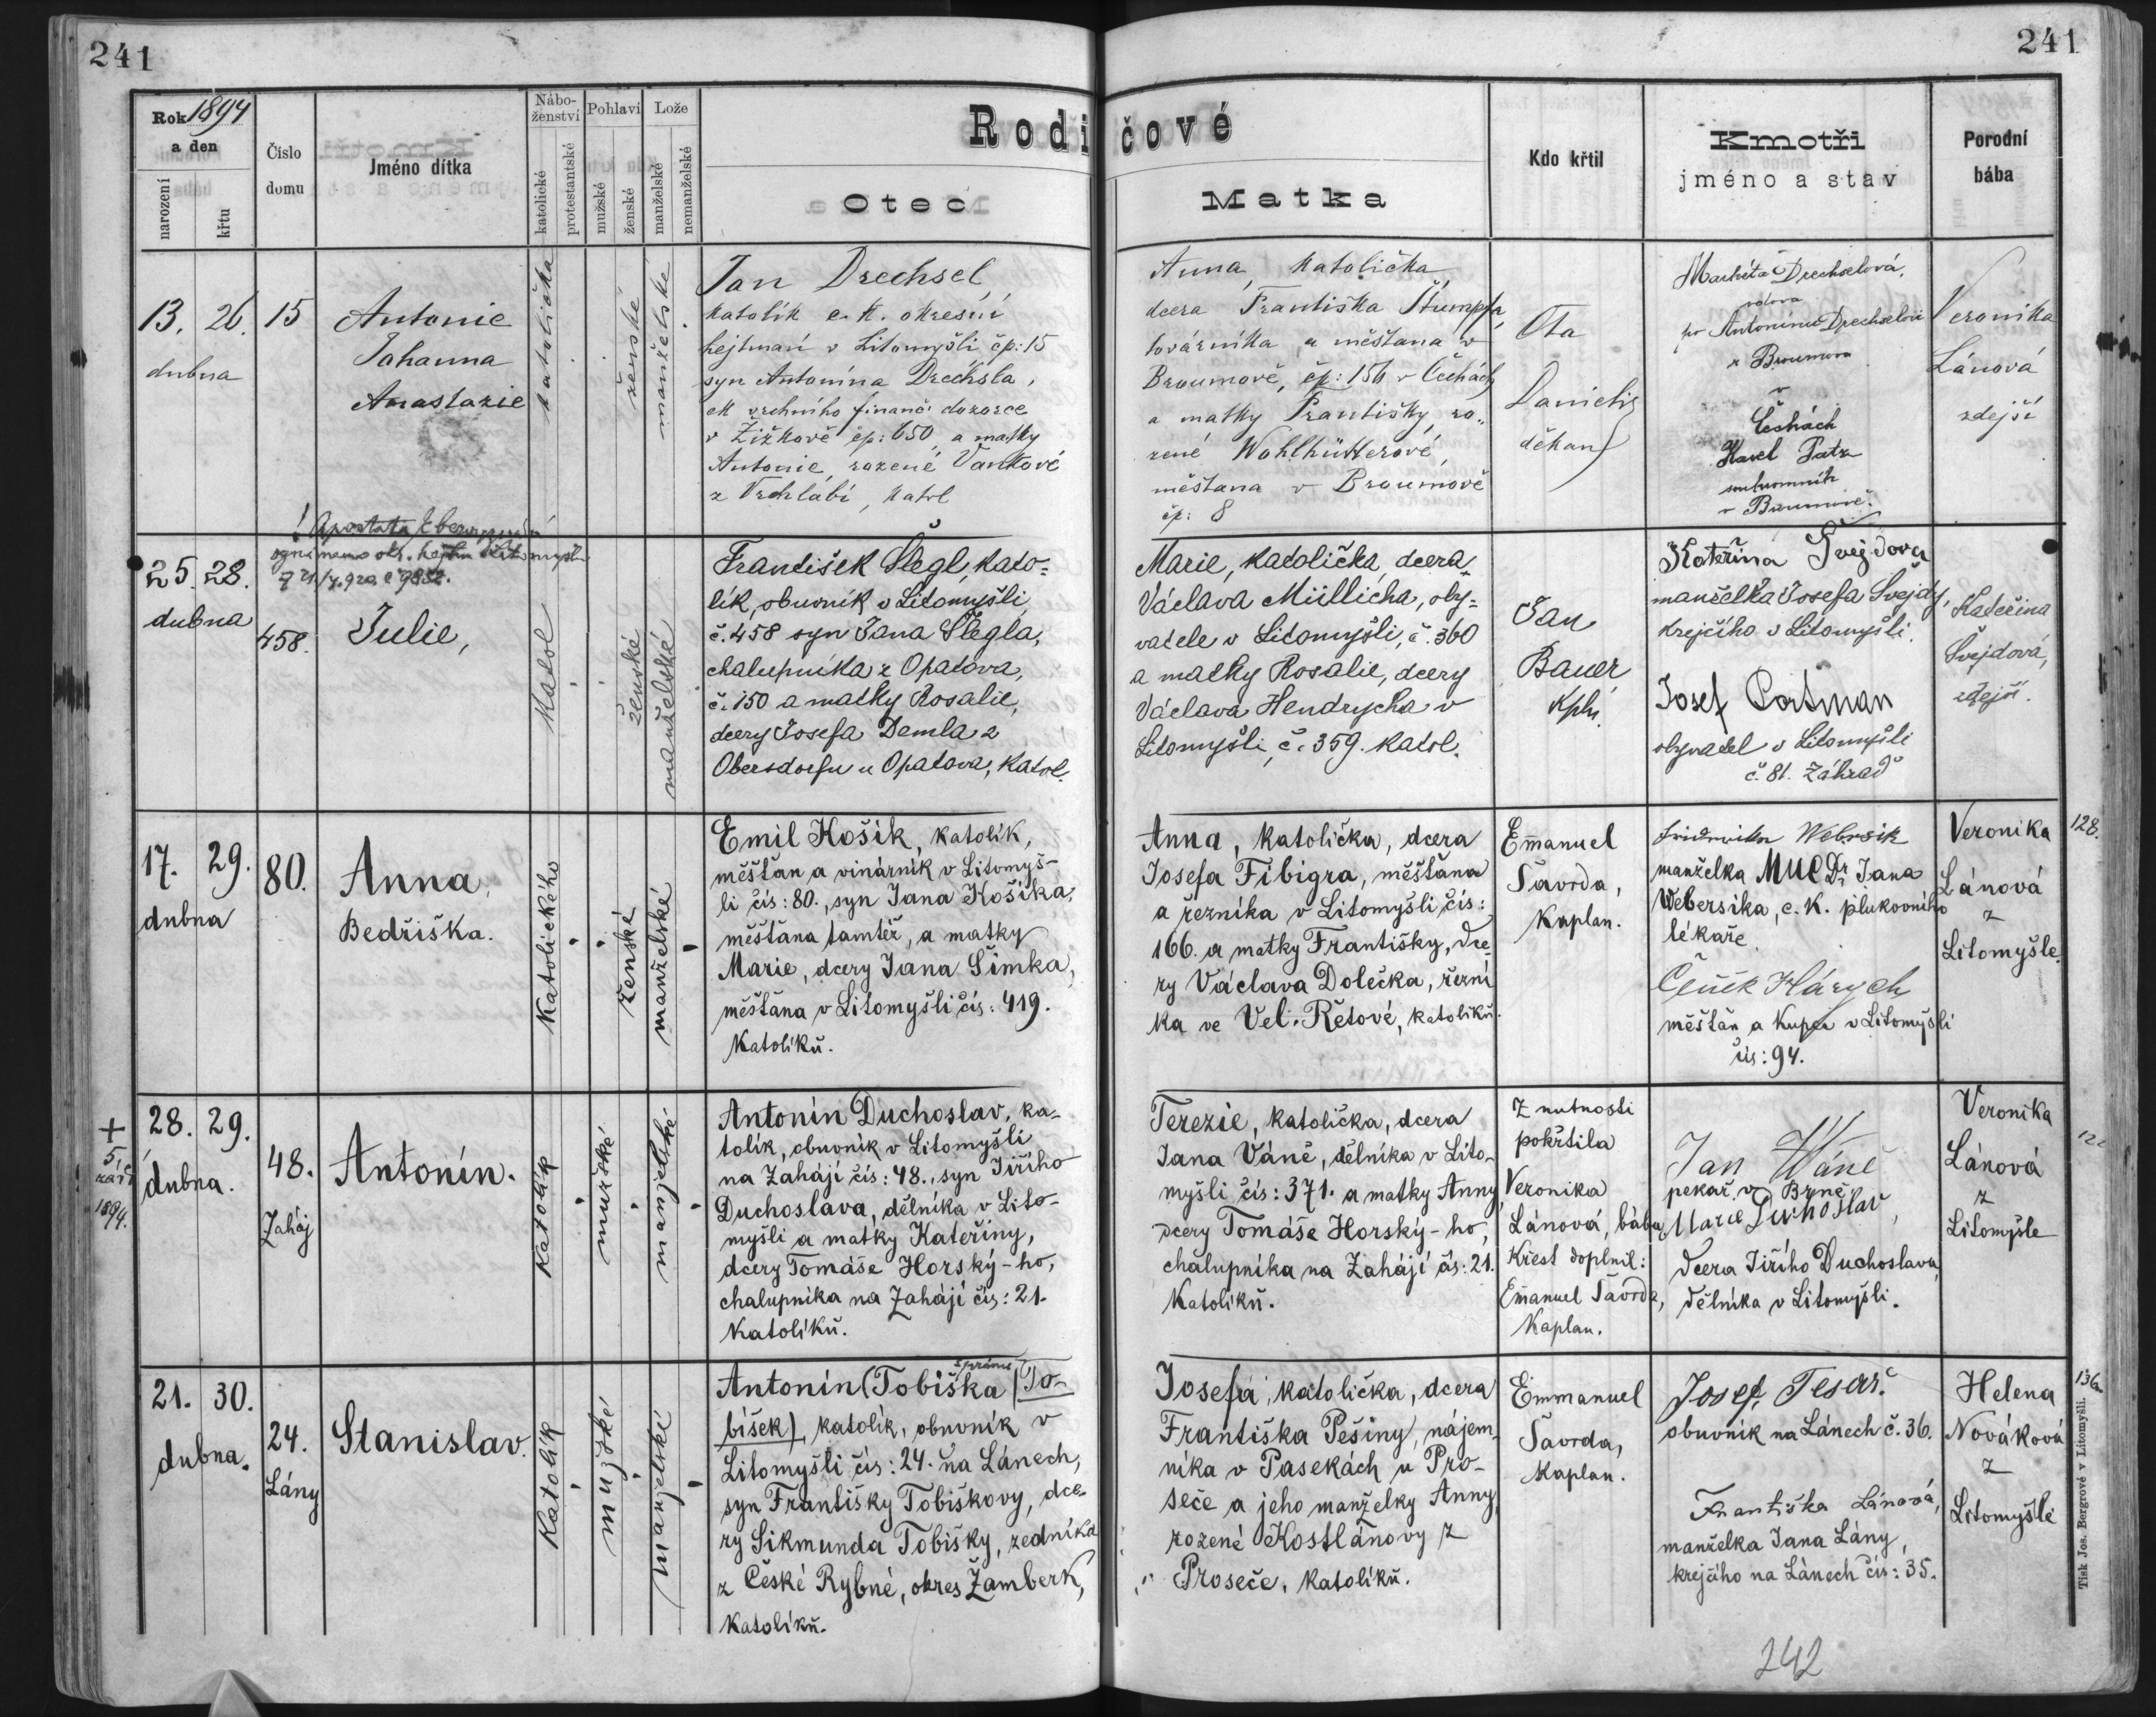 241
241
Rok 1894
a den
narození
křtu
Číslo
domu
Jméno dítka
Nábo-
ženství
katolické
protestantské
Pohlaví
mužské
ženské
Lože
manželské
nemanželské
Rodičové
Otec
Matka
Kdo křtil
Kmotři
jméno a stav
Porodní
bába
13. 26.
dubna
15
Antonie
Johanna
Anastazie
katolička
ženské
manželské
Jan Drechsel,
katolík c. k. okresní
hejtman v Litomyšli čp: 15
syn Antonína Drechsla,
ck vrchního finanč. dozorce
v Žižkově čp: 650, a matky
Antonie, rozené Vaňkové
z Vrchlábí, katol
Anna, katolička
dcera Františka Štumpfa,
továrníka a měšťana v
Broumově, čp: 156 v Čechách
a matky Františky, ro„
zené Wohlhütterové,
měšťana v Broumově
čp: 8
Ota
Danielis
děkan
Markéta Drechselová,
vdova
po Antonínu Drechselovi
z Broumova
v
Čechách
Havel Patz
soukromník
v Broumově.
Veronika
Lánová
zdejší
25. 28.
dubna
! Apostata
458.
Julie,
Katol
ženské
manželské
František Šlegl, kato=
lík, obuvník v Litomyšli
č. 458 syn Jana Šlegla,
chalupníka z Opatova,
č. 150 a matky Rosalie,
dcery Josefa Demla z
Obersdorfu u Opatova, Katol.
Marie, katolička, dcera
Václava Müllicha, oby=
vatele v Litomyšli, č. 360
a matky Rosalie, dcery
Václava Hendrycha v
Litomyšli, č. 359. katol.
Jan
Bauer
kpln.
Kateřina Švejdova
manželka Josefa Švejdy,
krejčího v Litomyšli.
Josef Portman
obyvatel v Litomyšli
č. 81. Záhrad
Kateřina
Švejdová,
zdejší.
17. 29.
dubna
80.
Anna,
Bedřiška.
Katolického
ženské
manželské
Emil Košík, katolík,
měšťan a vinárník v Litomyš-
li čís: 80., syn Jana Košíka,
měšťana tamtéž, a matky
Marie, dcery Jana Šimka,
měšťana v Litomyšli čís: 419.
Katolíků.
Anna, katolička, dcera
Josefa Fibigra, měšťana
a řezníka v Litomyšli čís:
166. a matky Františky, dce-
ry Václava Dolečka, řezní
ka ve Vel. Řetové, katolíků.
Emanuel
Šavrda,
Kaplan.
Webersik
manželka MUC Dr Jana
Webersika, c. k. plukovního
lékaře.
Čeněk Hárych
měšťan a kupec v Litomyšli
čís: 94.
Veronika
Lánová
z
Litomyšle.
128.
+
5.
září
1894.
28. 29.
dubna.
48.
Zaháj
Antonín.
Katolík
mužské
manželské
Antonín Duchoslav, ka-
tolík, obuvník v Litomyšli
na Zahájí čís: 48., syn Jiřího
Duchoslava, dělníka v Lito-
myšli a matky Kateřiny,
dcery Tomáše Horský-ho,
chalupníka na Zahájí čís: 21.
Katolíků.
Terezie, katolička, dcera
Jana Váně, dělníka v Lito-
myšli čís: 371. a matky Anny,
dcery Tomáše Horský-ho,
chalupníka na Zahájí čís: 21.
Katolíků.
Z nutnosti
pokřtila
Veronika
Lánová, bába
Křest doplnil:
Emanuel Šavrda,
Kaplan.
Jan Wáně
pekař v Brně
Marie Duchoslav,
dcera Jiřího Duchoslava,
dělníka v Litomyšli.
Veronika
Lánová
z
Litomyšle
21. 30.
dubna.
24.
Lány
Stanislav.
Katolík
mužské
manželské
Antonín (Tobiška správně To-
bíšek), katolík, obuvník v
Litomyšli čís: 24. na Lánech,
syn Františky Tobiškovy, dce-
ry Sikmunda Tobišky, zedníka
z České Rybné, okres Žamberk,
Katolíků.
Josefa, katolička, dcera
Františka Pešiny, nájem-
níka v Pasekách u Pro-
seče a jeho manželky Anny,
rozené Kostlánovy z
Proseče, katolíků.
Emmanuel
Šavrda,
Kaplan.
Josef Tesař.
obuvník na Lánech č. 36.
Františka Lánová,
manželka Jana Lány,
krejčího na Lánech čís: 35.
Helena
Nováková
z
Litomyšle
136
Tisk Jos. Bergrové v Litomyšli.
242